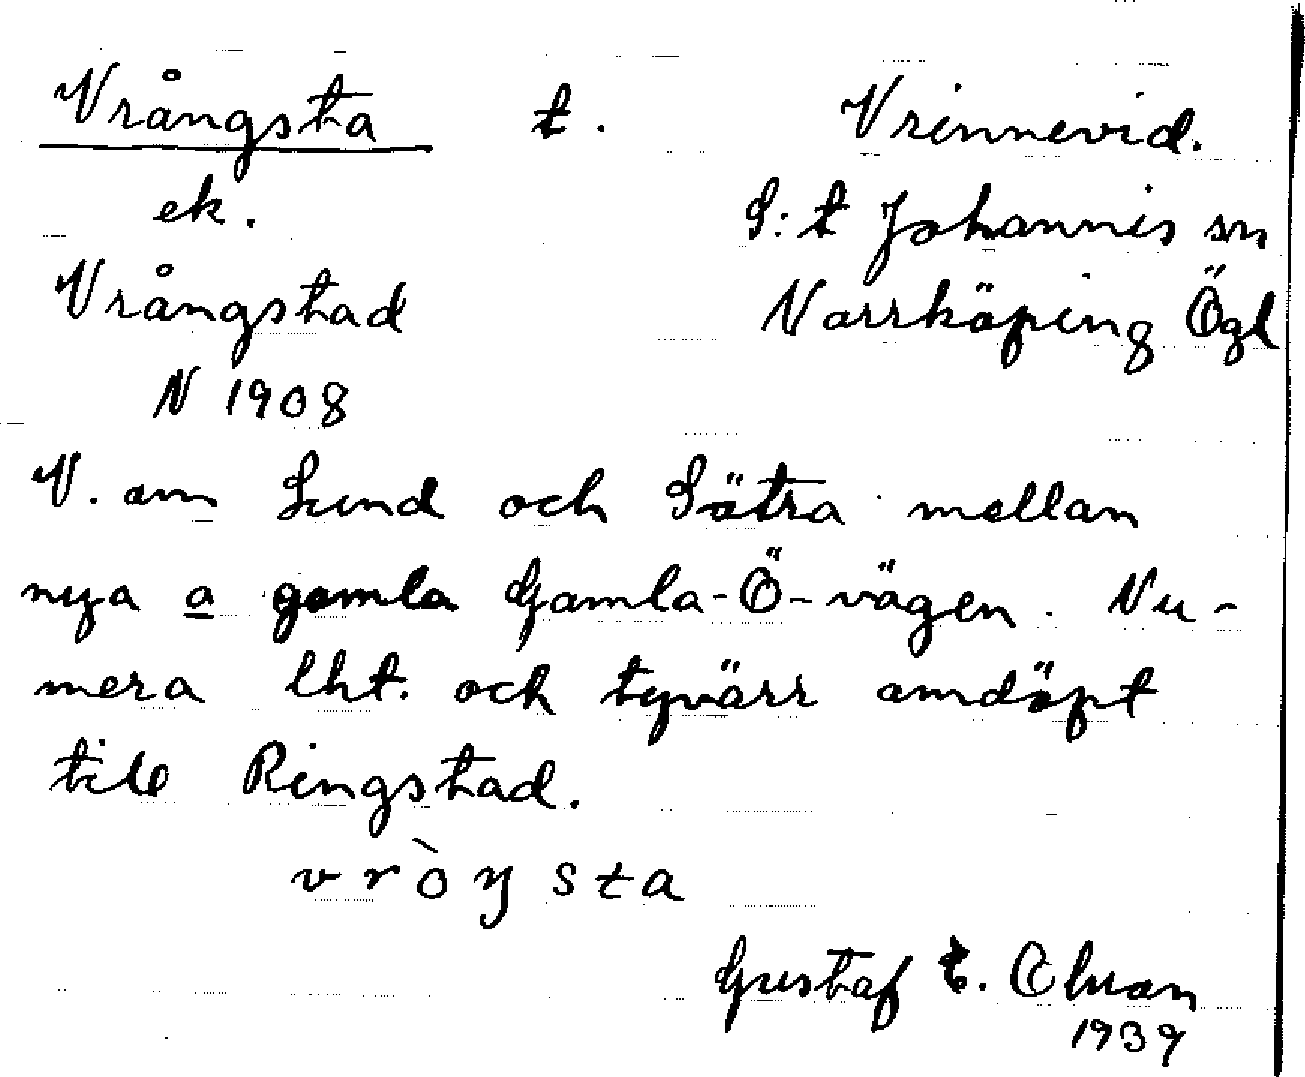 Vrångsta t. Vrinnevid.
ek. S:t Johannis sn
Vrångstad Norrköping Ögl
N 1908
V. om Lund och Sötra mellan
nya o gamla Gamla-Ö-vägen. Nu-
mera lht. och tyvärr omdöpt
till Ringstad.
vròŋsta
Gustaf t.
1939